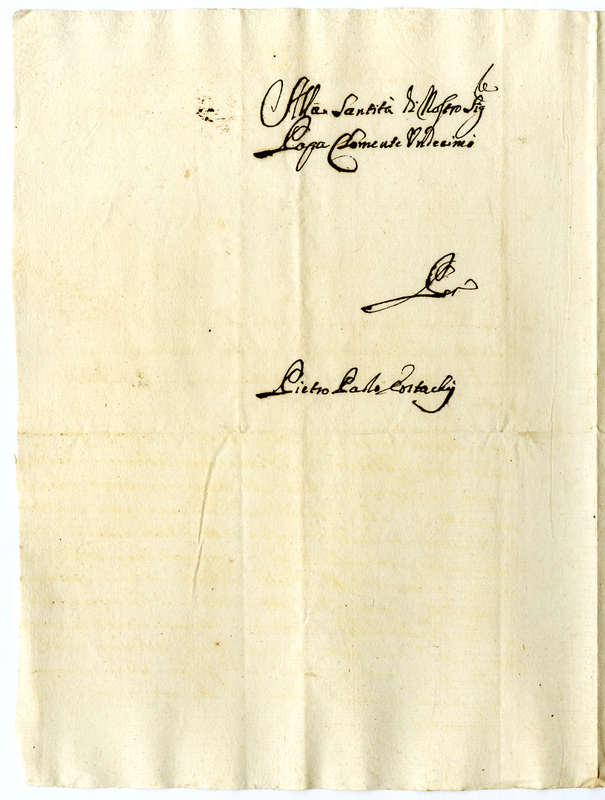 Alla Santità di Nostro Sig.re
Papa Clemente Undecimo
Per
Pietro Paolo